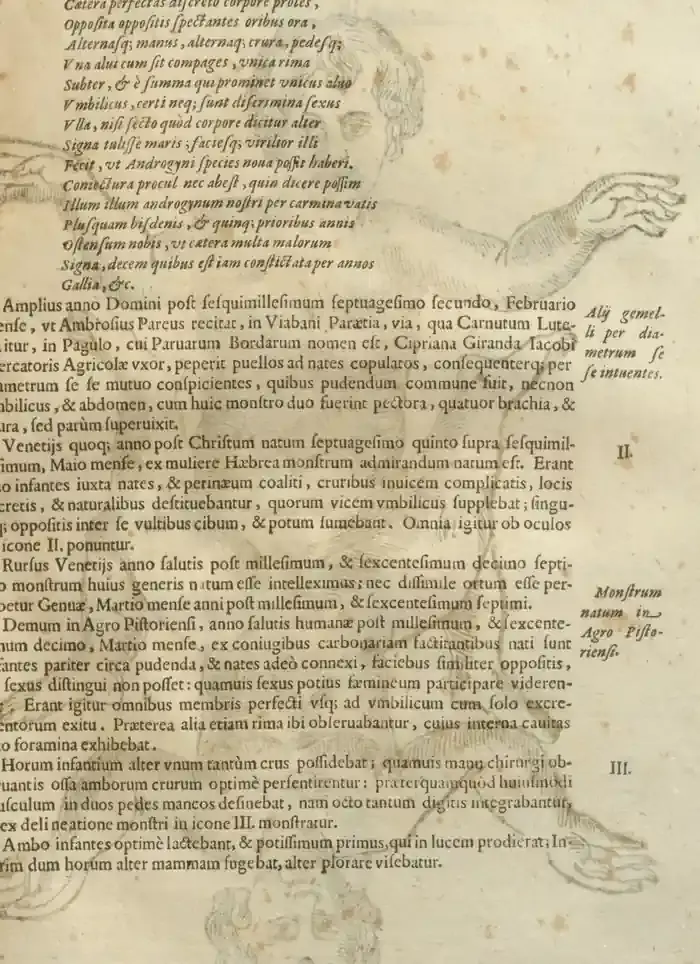 Cætera perfectas discreto corpore proles,
Opposita oppositis spectantes oribus ora,
Alternasq; manus, alternaq; crura, pedesq;
Vna alui cum sit compages, vnica rima
Subter, & è summa qui prominet vnicus aluo
Vmbilicus, certi neq; sunt discrimina sexus
Vlla, nisi secto quòd corpore dicitur alter
Signa tulisse maris; faciesq; virilior illi
Fecit, vt Androgyni species noua posset haberi.
Coniectura procul nec abest, quin dicere possim
Illum illum androgynum nostri per carmina vatis
Plusquam bisdenis, & quinq; prioribus annis
Ostensum nobis, vt cætera multa malorum
Signa, decem quibus est iam conflictata per annos
Gallia, &c.
Amplius anno Domini post sesquimillesimum septuagesimo secundo, Februario
ense, vt Ambrosius Pareus recitat, in Viabani Parætia, via, qua Carnutum Lute-
itur, in Pagulo, cui Paruarum Bordarum nomen est, Cipriana Giranda Iacobi
ercatoris Agricolæ vxor, peperit puellos ad nates copulatos, consequenterq; per
ametrum se se mutuo conspicientes, quibus pudendum commune fuit, necnon
mbilicus, & abdomen, cum huic monstro duo fuerint pectora, quatuor brachia, &
ura, sed parùm superuixit.
Alij gemel-
li per dia-
metrum se
se intuentes.
Venetijs quoq; anno post Christum natum septuagesimo quinto supra sesquimil-
simum, Maio mense, ex muliere Hæbrea monstrum admirandum natum est. Erant
o infantes iuxta nates, & perinæum coaliti, cruribus inuicem complicatis, locis
cretis, & naturalibus destituebantur, quorum vicem vmbilicus supplebat; singu-
q; oppositis inter se vultibus cibum, & potum sumebant. Omnia igitur ob oculos
icone II. ponuntur.
II.
Rursus Venetijs anno salutis post millesimum, & sexcentesimum decimo septi-
o monstrum huius generis natum esse intelleximus; nec dissimile ortum esse per-
betur Genuæ, Martio mense anni post millesimum, & sexcentesimum septimi.
Demum in Agro Pistoriensi, anno salutis humanæ post millesimum, & sexcente-
mum decimo, Martio mense, ex coniugibus carbonariam factitantibus nati sunt
fantes pariter circa pudenda, & nates adeò connexi, faciebus similiter oppositis,
sexus distingui non posset: quamuis sexus potius fæmineum participare videren-
. Erant igitur omnibus membris perfecti vsq; ad vmbilicum cum solo excre-
entorum exitu. Præterea alia etiam rima ibi obseruabantur, cuius interna cauitas
o foramina exhibebat.
Monstrum
natum in
Agro Pisto-
riensi.
Horum infantium alter vnum tantùm crus possidebat; quamuis manu chirurgi ob-
uantis ossa amborum crurum optimè persentirentur: præterquamquòd huiusmodi
usculum in duos pedes mancos desinebat, nam octo tantum digitis integrabantur,
ex delineatione monstri in icone III. monstratur.
III.
Ambo infantes optimè lactebant, & potissimum primus, qui in lucem prodierat; In-
rim dum horum alter mammam sugebat, alter plorare visebatur.